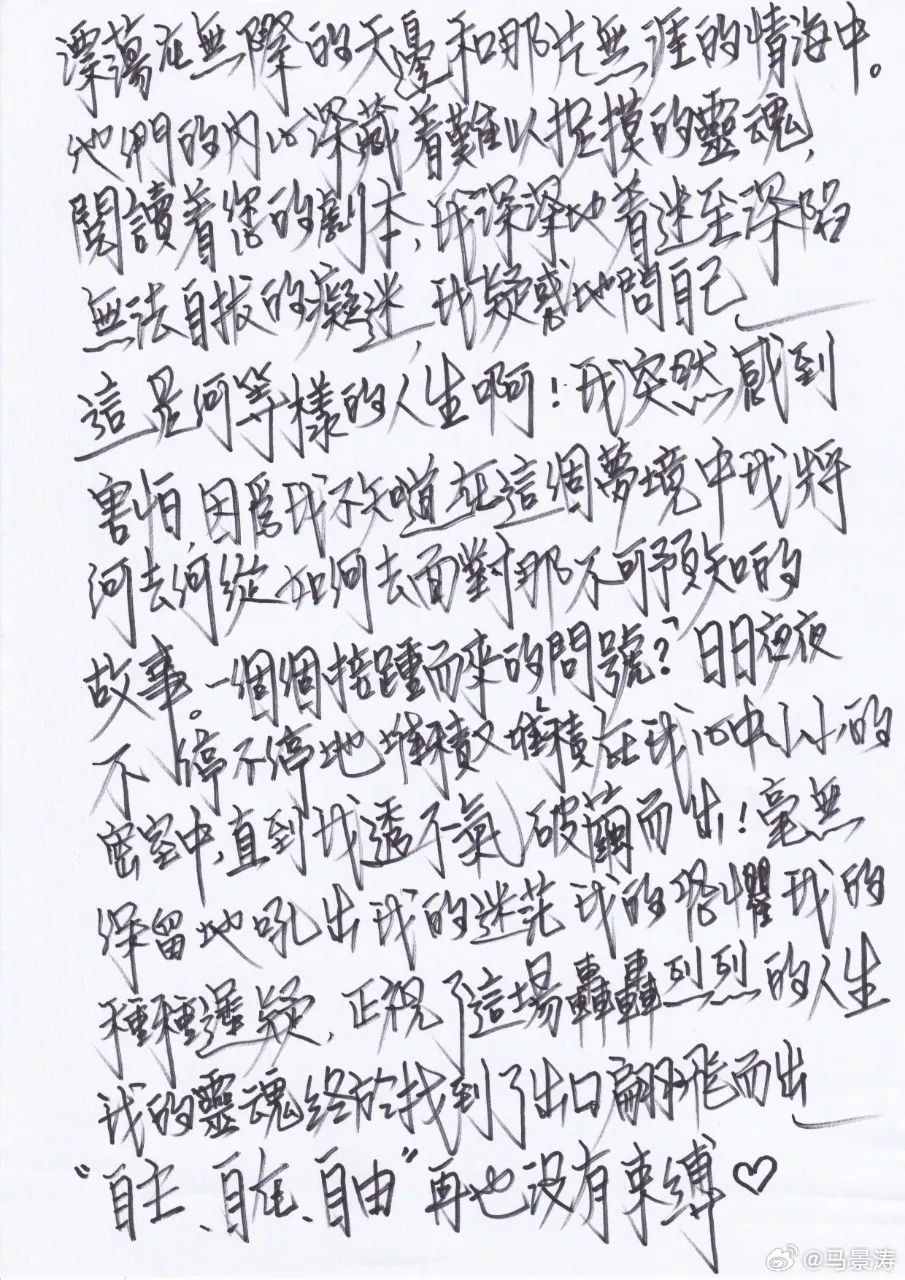 漂蕩在無際的天邊和那片無涯的情海中。
他們的内心深藏着難以捉摸的靈魂,
閱讀着您的劇本,我深深地着迷至深陷
無法自拔的癡迷,我疑惑地問自己
這是何等樣的人生啊!我突然感到
害怕,因爲我不知道在這個夢境中我將
何去何從如何去面對那不可預知的
故事。一個個接踵而來的問號?日日夜夜
不停不停地堆積又堆積在我心中小小的
密室中,直到我透不氣破繭而出!毫無
保留地吼出我的迷茫我的恐懼我的
種種遲疑,正視了這場轟轟烈烈的人生
我的靈魂終於找到了出口翩飛而出
“自主、自在、自由”再也没有束縛♡
@马景涛